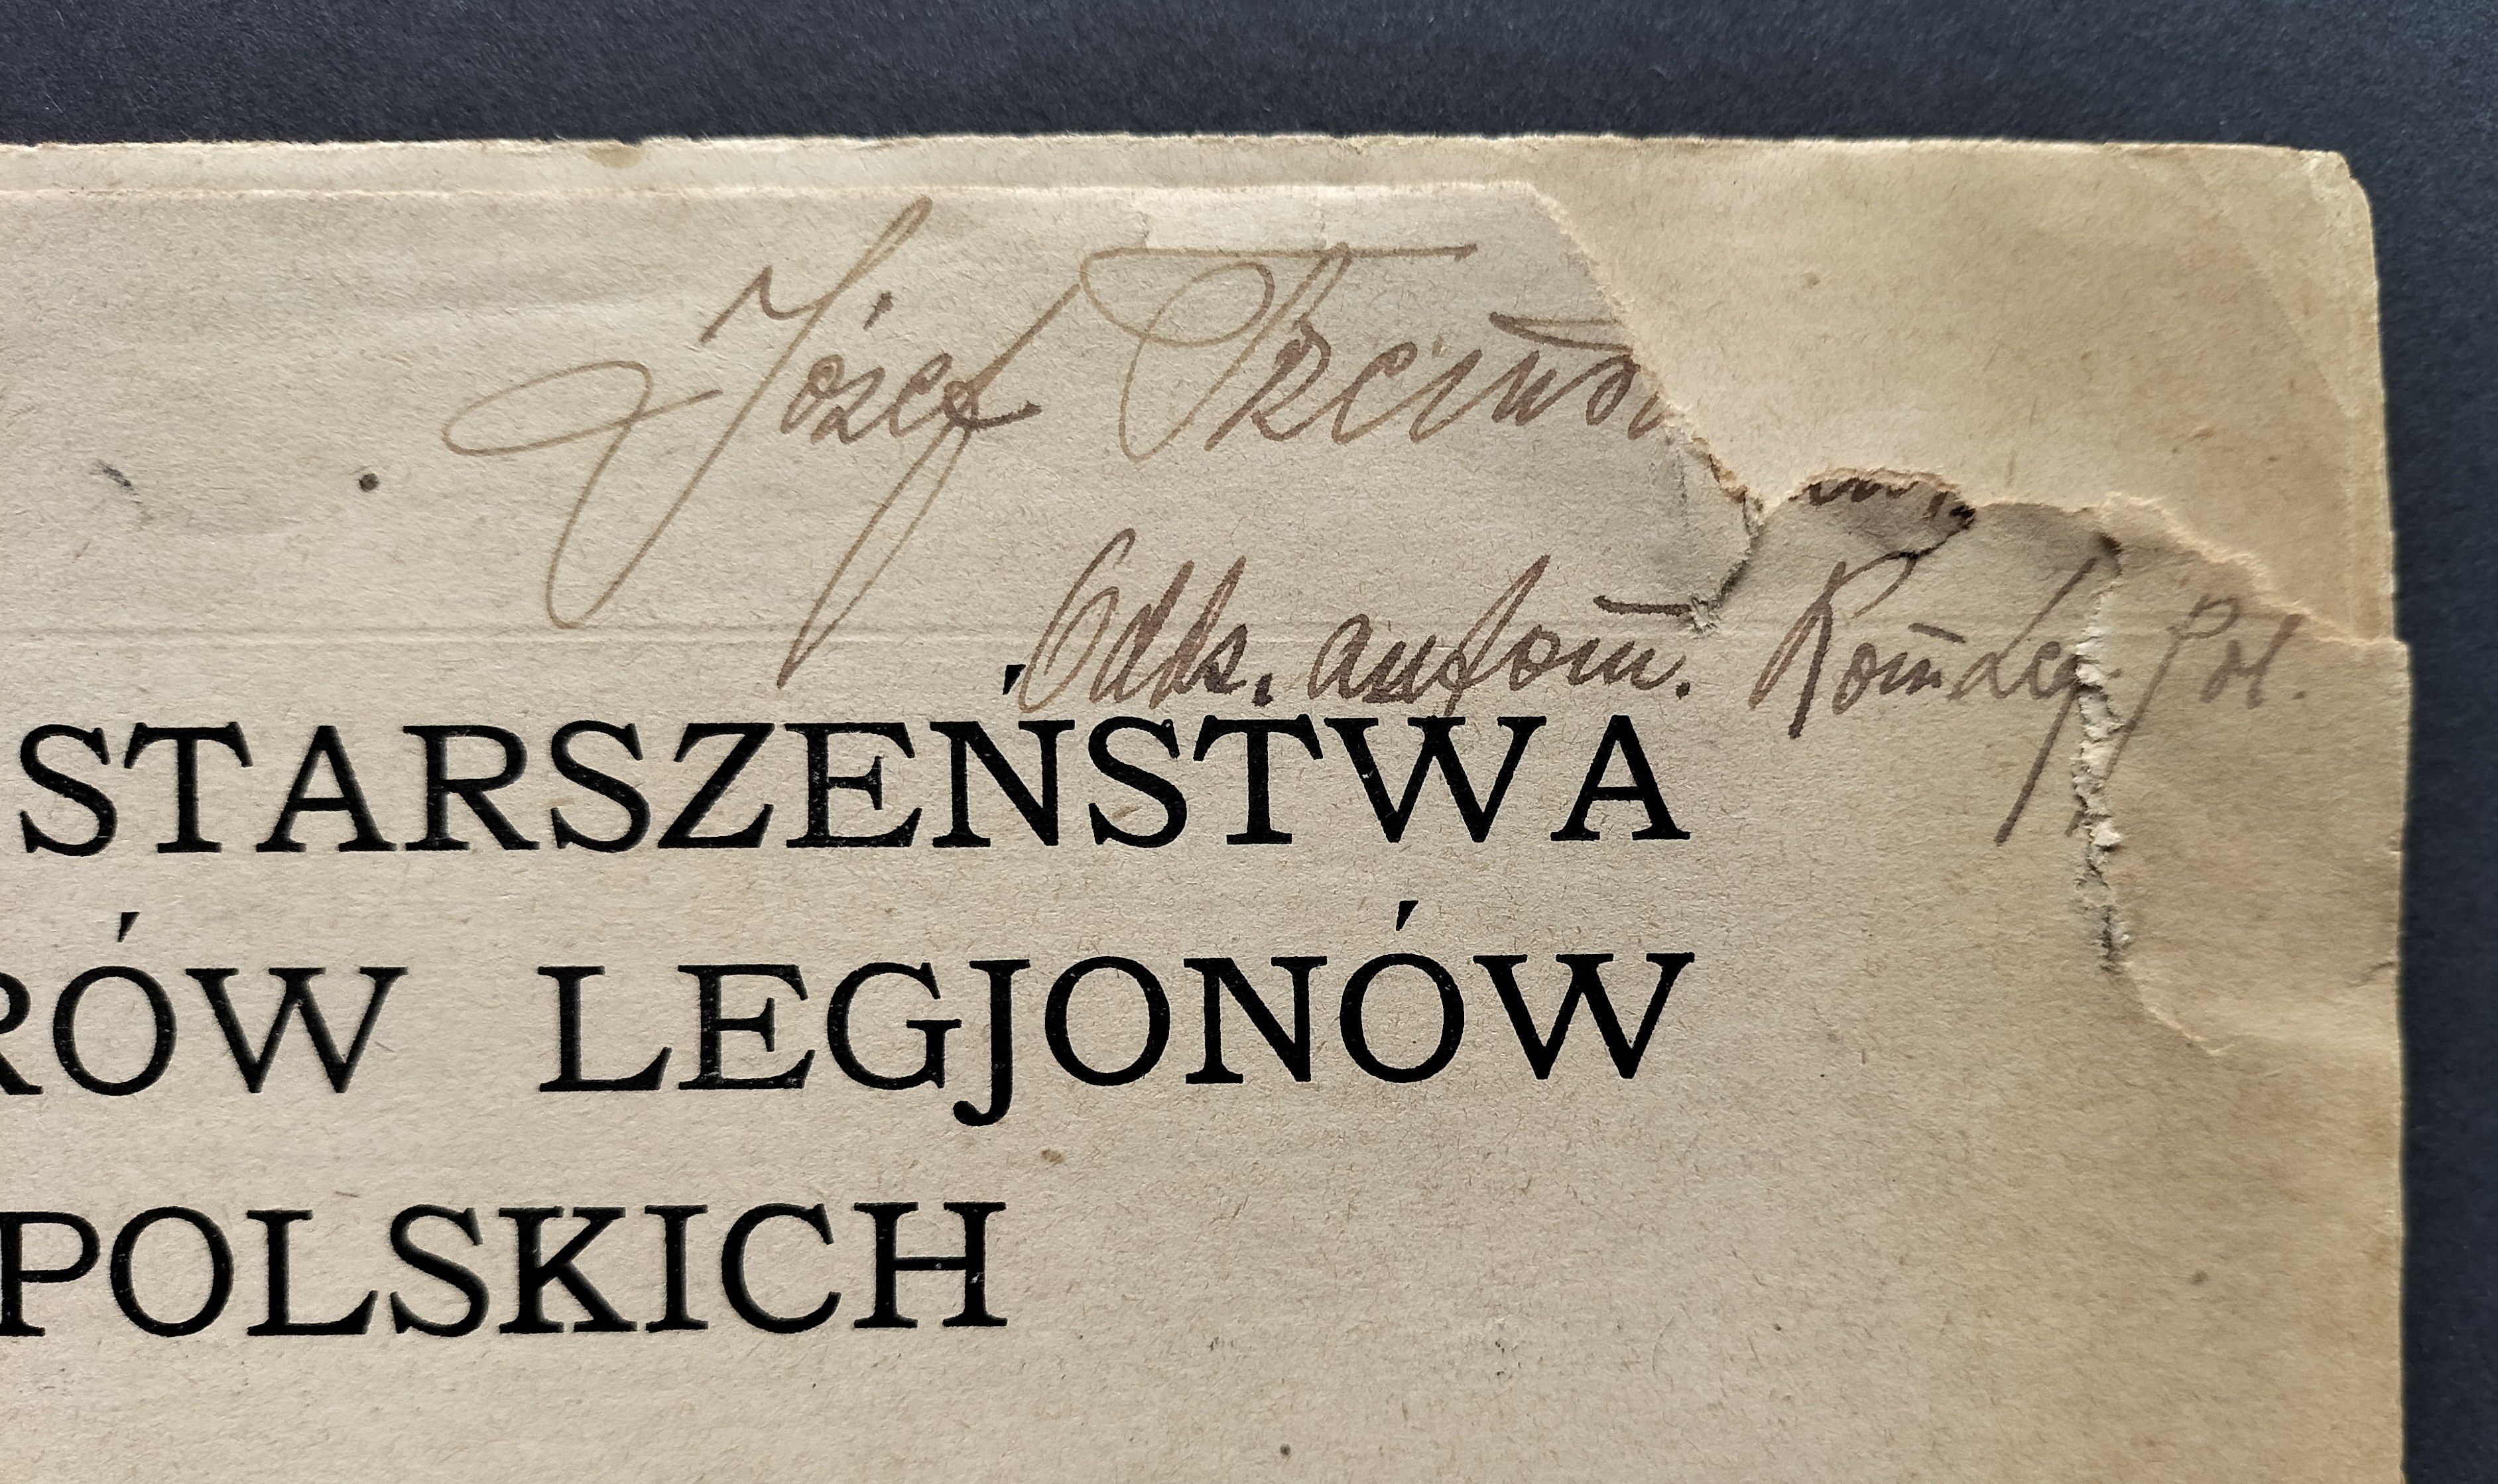 Józef
Odds. autom. Kom. Leg. Pol.
STARSZEŃSTWA
RÓW LEGJONÓW
POLSKICH